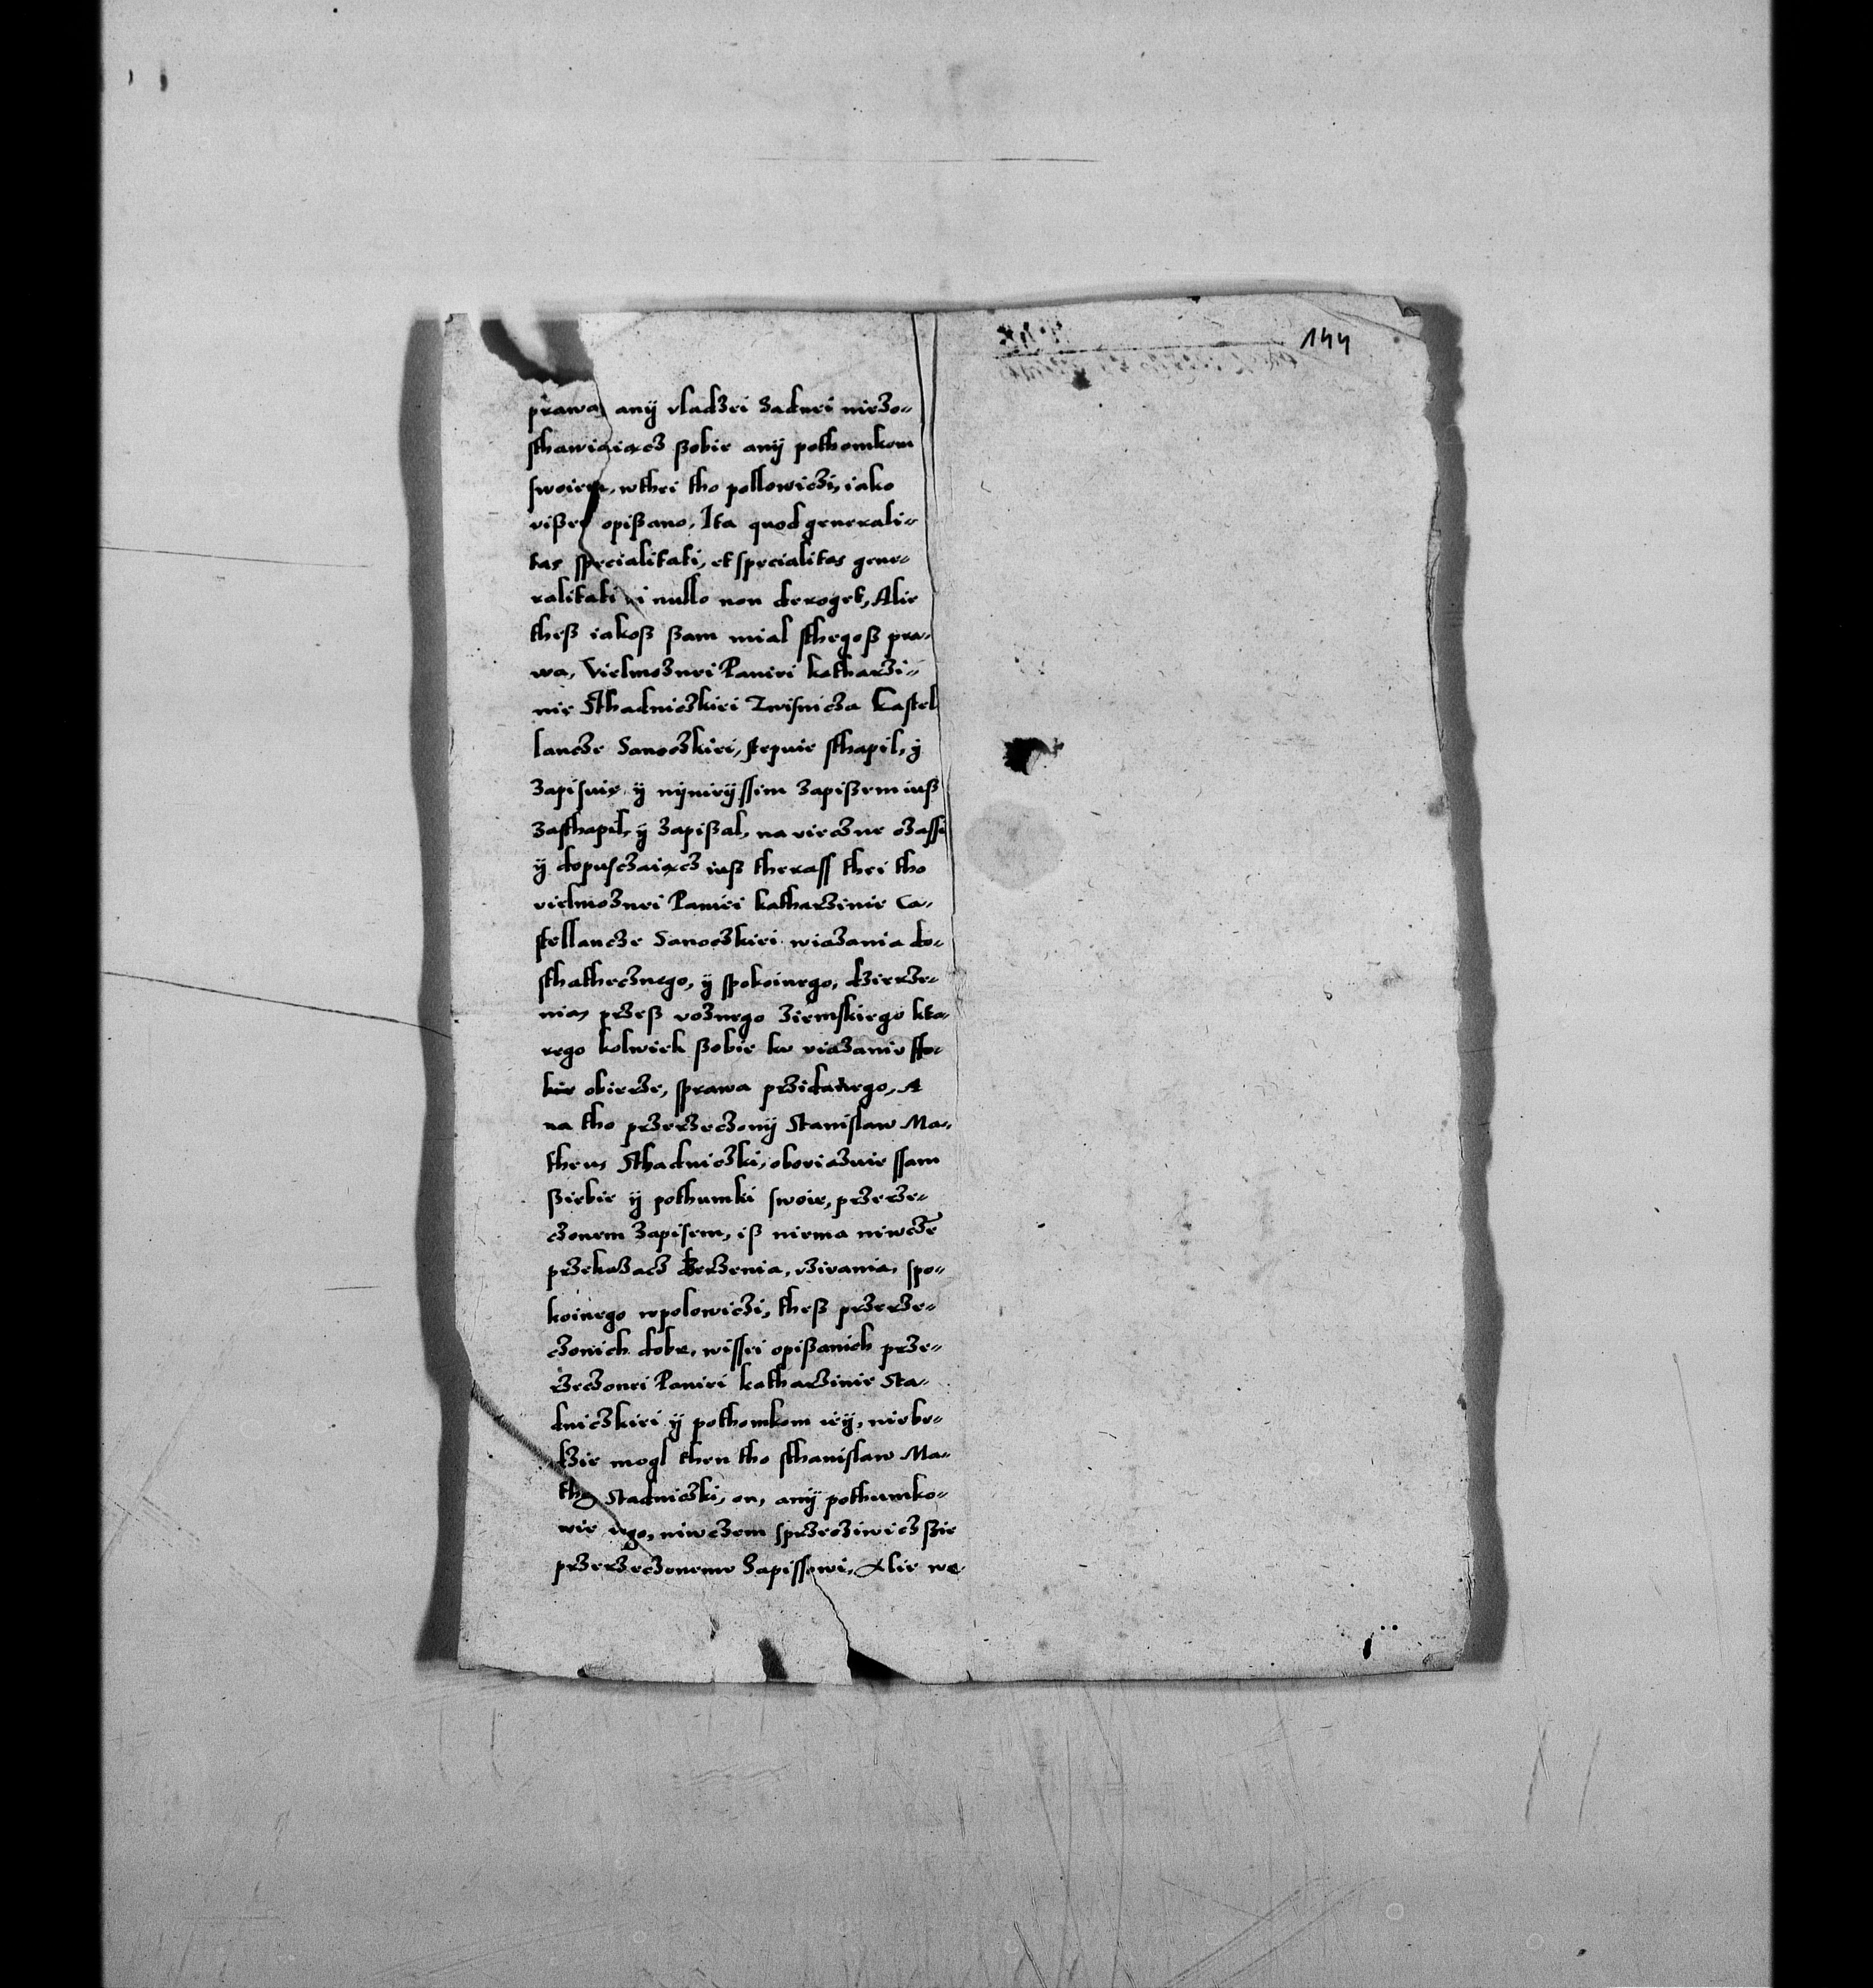 144
prawa, any vladzei zadnei niezo-
sthawiaiacz ßobie any pothomkom
swoiem, wthei tho pollowiczi, iako
vißei opißano, Ita quod generali-
tas specialitati, et specialitas gene-
ralitati in nullo non deroget, Alie
theß iakoß ßam mial sthegoß pra-
wa, Vielmoznei Paniei katharzi-
nie Sthadniczkiei Zwisnicza Kastel
lancze Sanoczkiei, stepuie sthapil, ÿ
zapisuie ÿ nÿnieÿssim zapißem iuß
zasthapil, ÿ zapißal, na vieczne czassi
ÿ dopusczaiacz iuß therass thei tho
vielmoznei Paniei katharzinie Ca-
stellancze Sanoczkiei wiazania do-
sthathecznego, ÿ spokoinego, dzierze-
nia, przeß voznego ziemskiego kto-
rego kolwiek ßobie kv viazaniv sto-
kie obierze, sprawa przidanego, A
na tho przerzeczonÿ Stanislaw Ma-
theus Sthadniczki, oboviaznie ssam
ßiebie ÿ pothumki swoie, przerze-
czonem zapisem, iß niema niwcze
przekazacz dzerzenia, vzivania, spo-
koinego wpolowiczi, theß przerze-
czonich dobr, wissei opißanich prze-
rzeczonei Paniei katharzinie Sta-
dniczkiei ÿ pothomkom ieÿ, niebe-
dzie mogl then tho sthanislaw Ma-
thÿ Stadniczki, on, anÿ pothumko-
wie iego, niwczem sprzecziwicz ßie
przerzeczonemv Zapissowi, Alie we